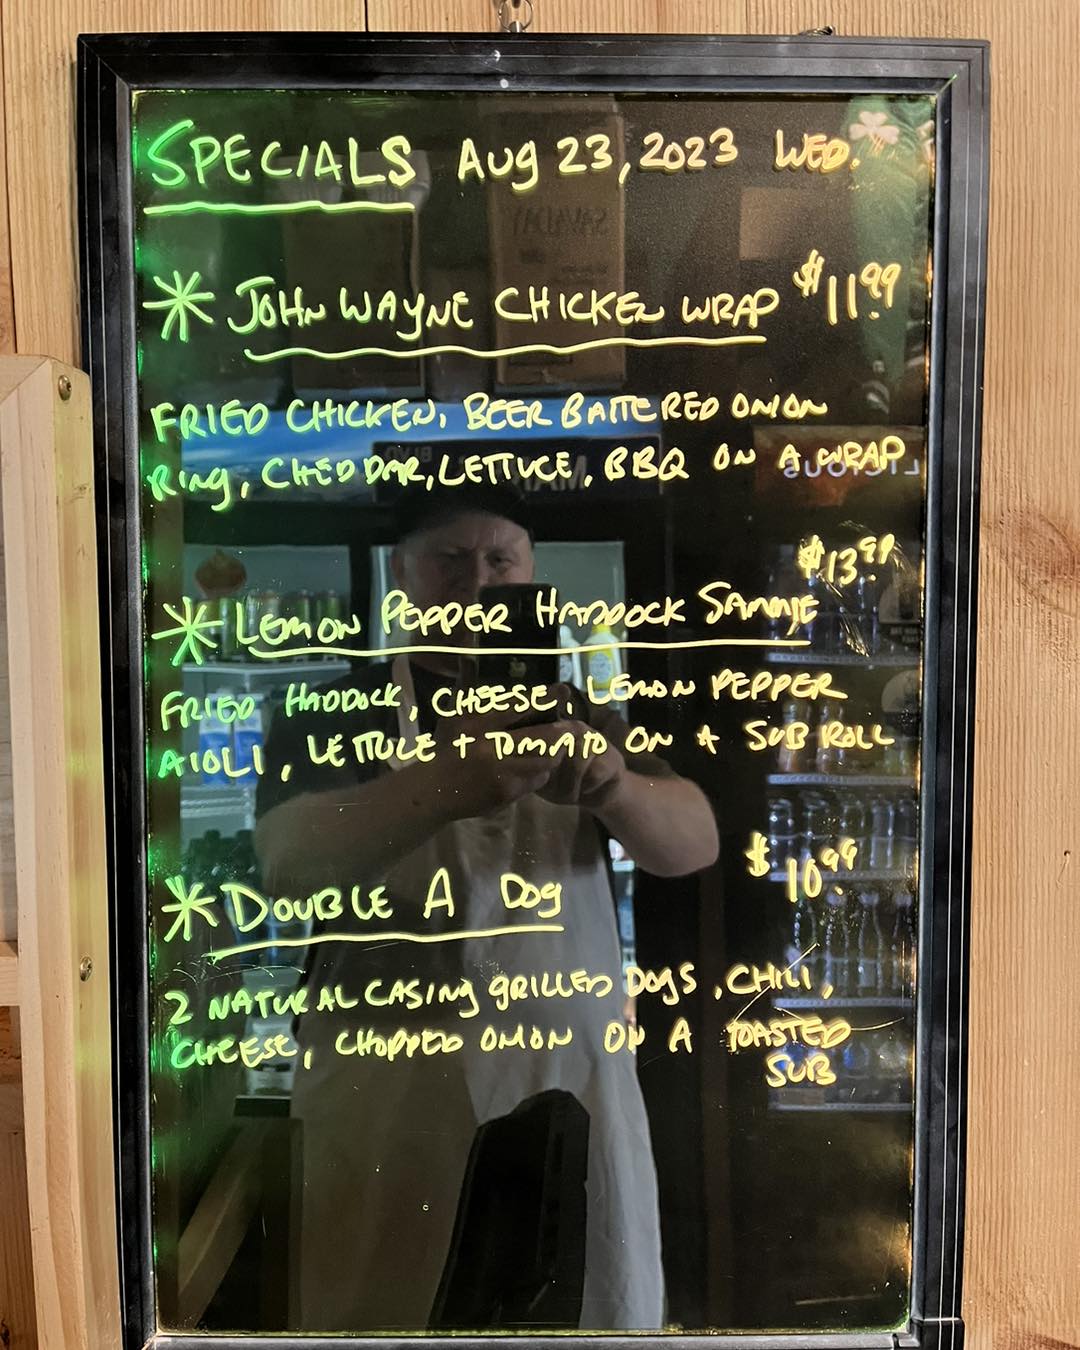 SPECIALS Aug 23, 2023 WED.
* JOHN WAYNE CHICKEN WRAP $11.99
FRIED CHICKEN, BEER BATTERED ONION
RING, CHEDDAR, LETTUCE, BBQ ON A WRAP
$13.99
* LEMON PEPPER HADDOCK SAMMIE
FRIED HADDOCK, CHEESE, LEMON PEPPER
AIOLI, LETTUCE + TOMATO ON A SUB ROLL
$10.99
* DOUBLE A Dog
2 NATURAL CASING GRILLED DOGS, CHILI,
CHEESE, CHOPPED ONION ON A TOASTED
SUB